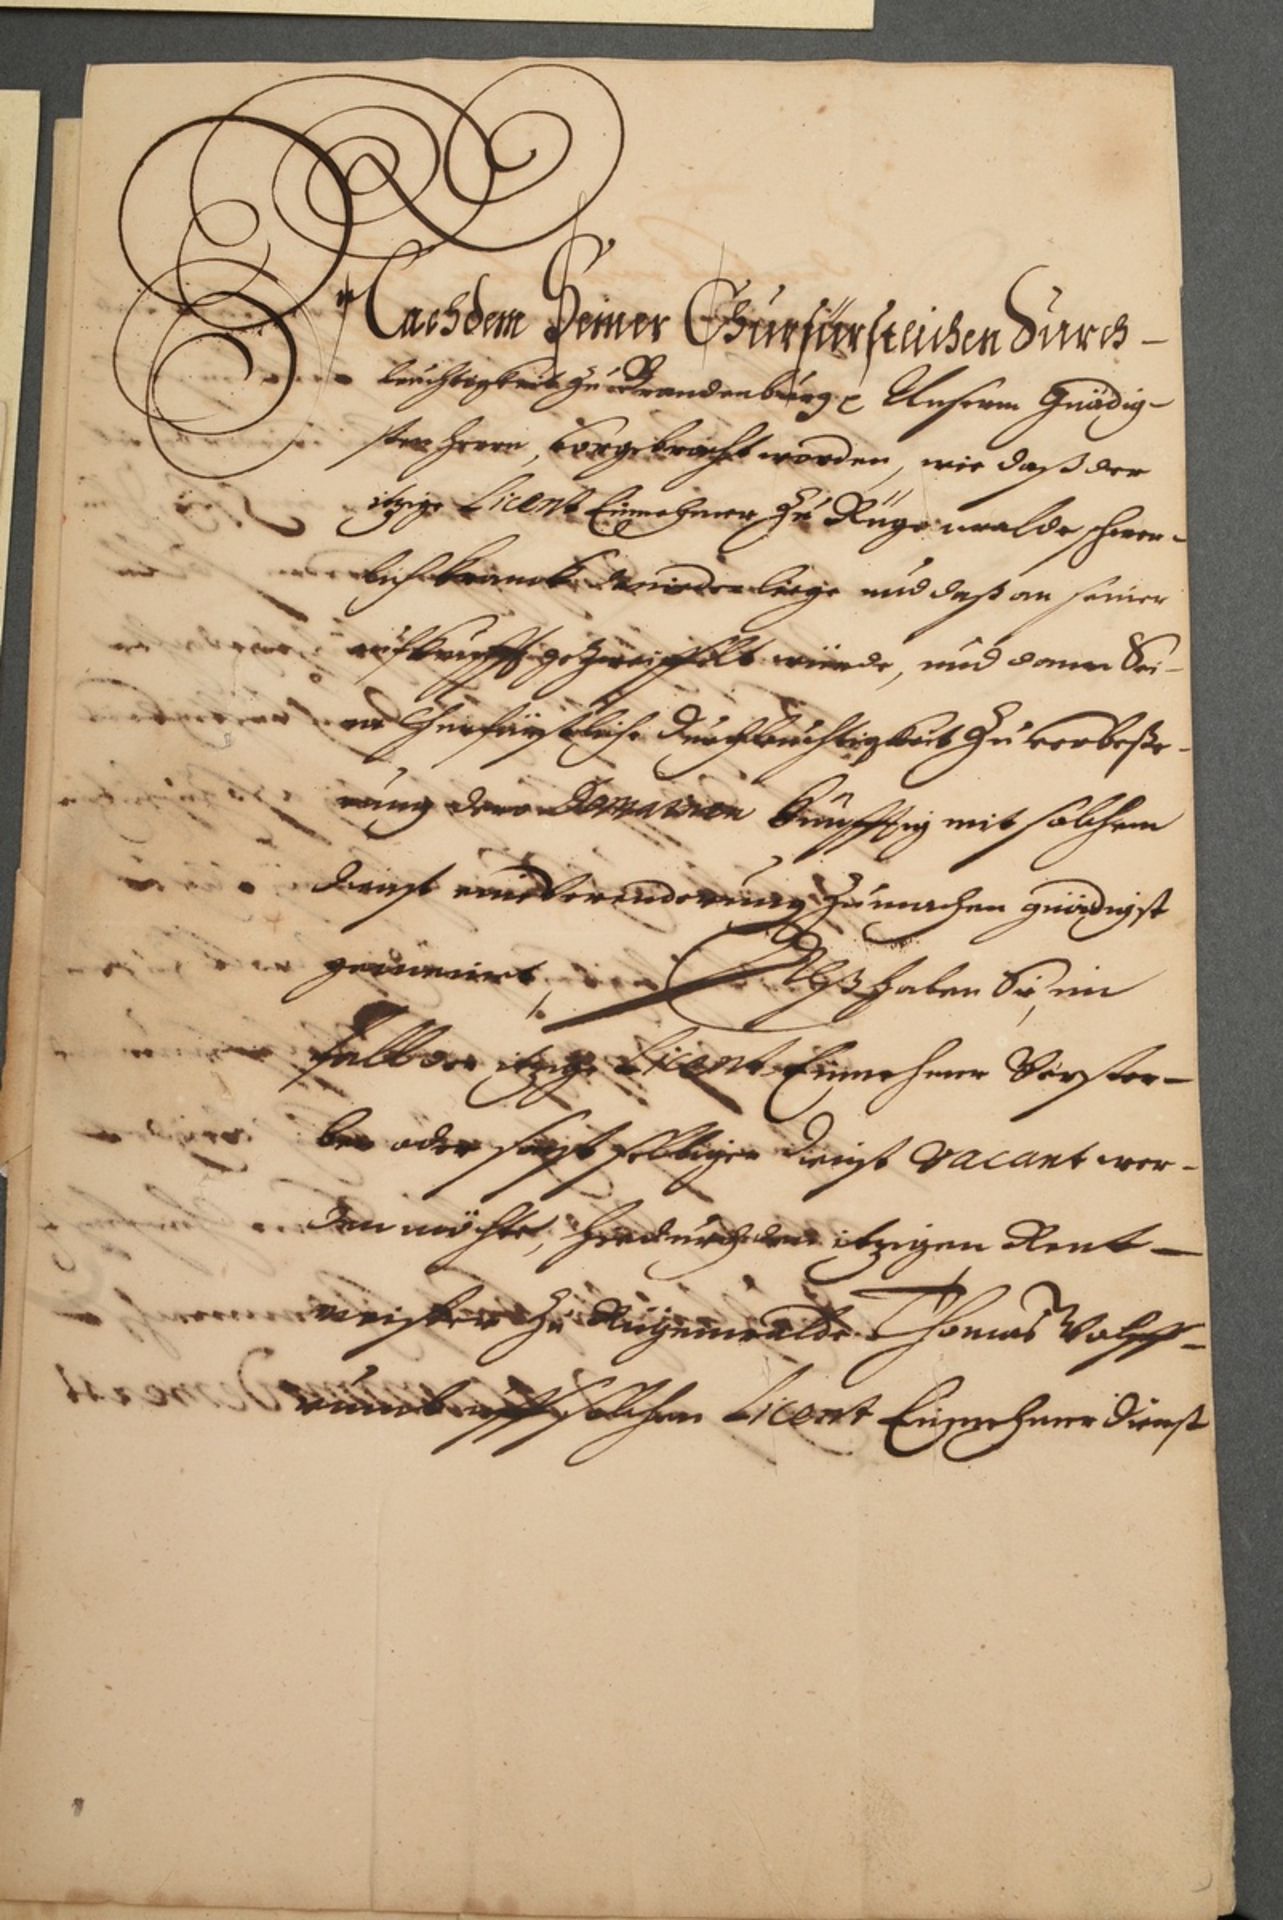 Nachdem Seiner Churfürstlichen Durch-
leuchtigkeit zu Brandenburg Unserm Gnädig-
sten Herrn, vorgebracht worden, wie daß der
itzige Licent Einnehmer zu Rügenwalde schwer-
lich kranck darnieder liege und daß an seiner
aufkunfft gezweiffelt würde, und dann Sei-
ne Churfürstliche Durchleuchtigkeit zu verbeße-
rung dero Domainen künfftig mit solchem
dienst eine Verenderung zu machen gnädigst
Alß haben Sie, im
fall der itzige Licent Einnehmer Verster-
ben oder sonst selbiger dienst vacant wer-
den möchte, hiedurch den itzigen Rent-
meister zu Rügenwalde Thomas
auff solchen Licent Einnehmer dienst